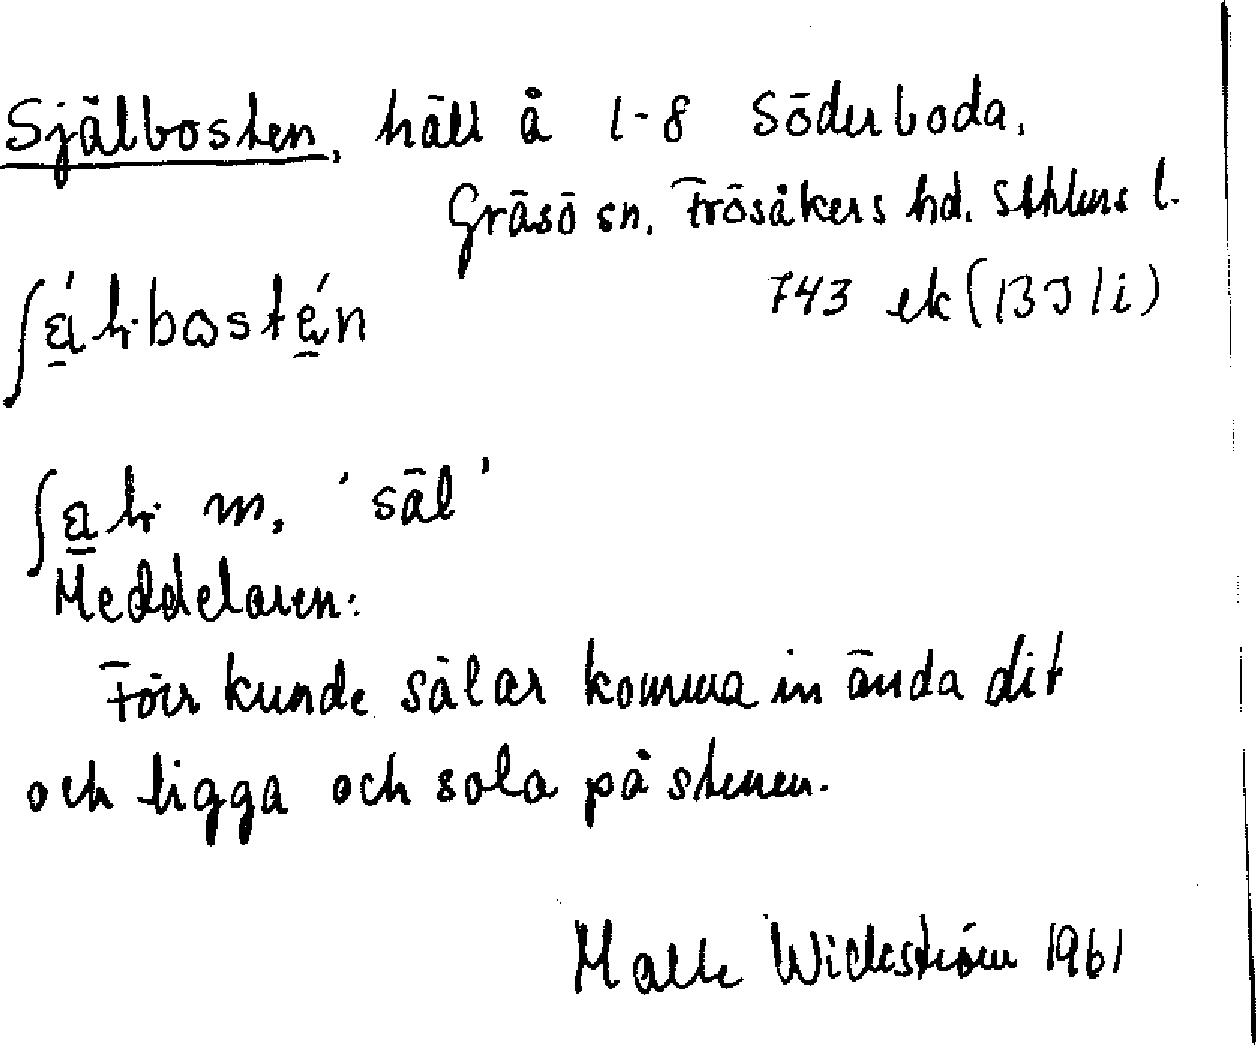 Själbosten, häll å 1-8 Söderboda,
Gräsö sn, Frösåkers hd. Sthlms l.
743 ek (13J 1i)
Meddelaren:
Förr kunde sälar komma in ända dit
och ligga och sola på stenen.
m. 'säl'
Wickström 1961